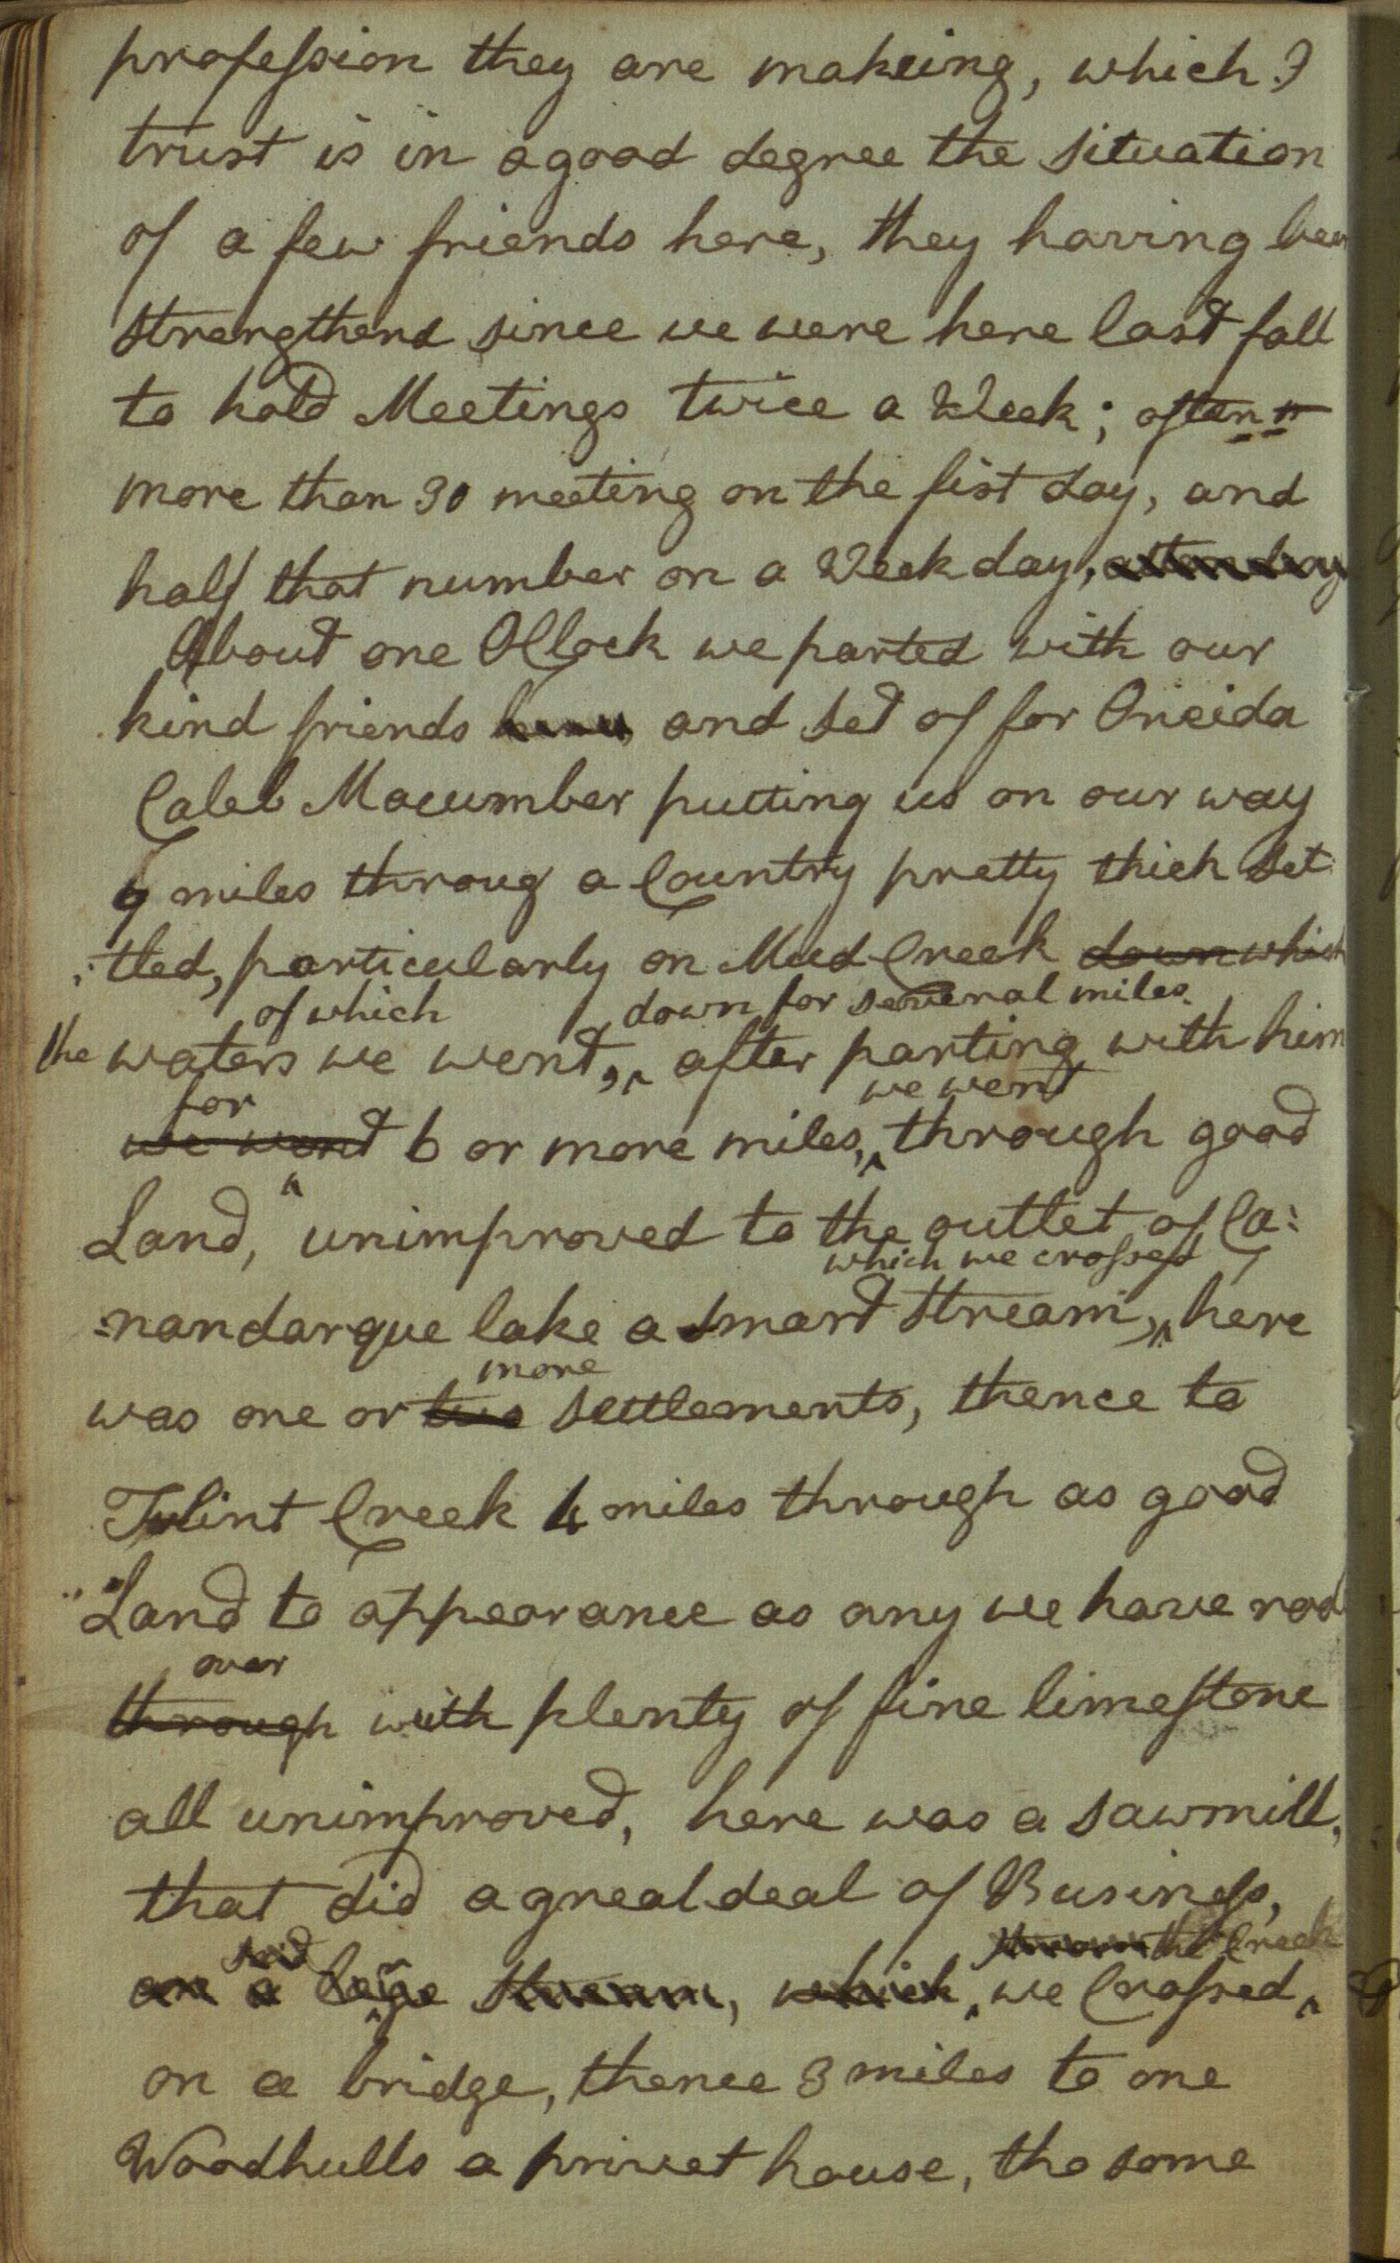 profession they are makeing, which I
trust is in a good degree the situation
of a few friends here, they having been
strengthend since we were here last fall
to hold Meetings twice a Week; often
more than 30 meeting on the fist day, and
half that number on a Week day, attending
About one OClock we parted with our
kind friends here and set of for Oneida
Caleb Macumber putting us on our way
9 miles throug a Country pretty thick set
:tled, particularly on Mud Creek down which
of which down for several miles
the waters we went, after parting with him
for we went
we went 6 or more miles, through good
Land, unimproved to the outlet of Ca:
which we crossed
:nandarque lake a smart stream, here
more
was one or two settlements, thence to
Flint Creek 4 miles through as good
Land to appearance as any we have rod
over
through with plenty of fine limestone
all unimproved, here was a sawmill,
that did a greal deal of Business,
said the Creek
on a large stream, which we Crossed
on a bridge, thence 3 miles to one
Woodhulls a privet house, tho some